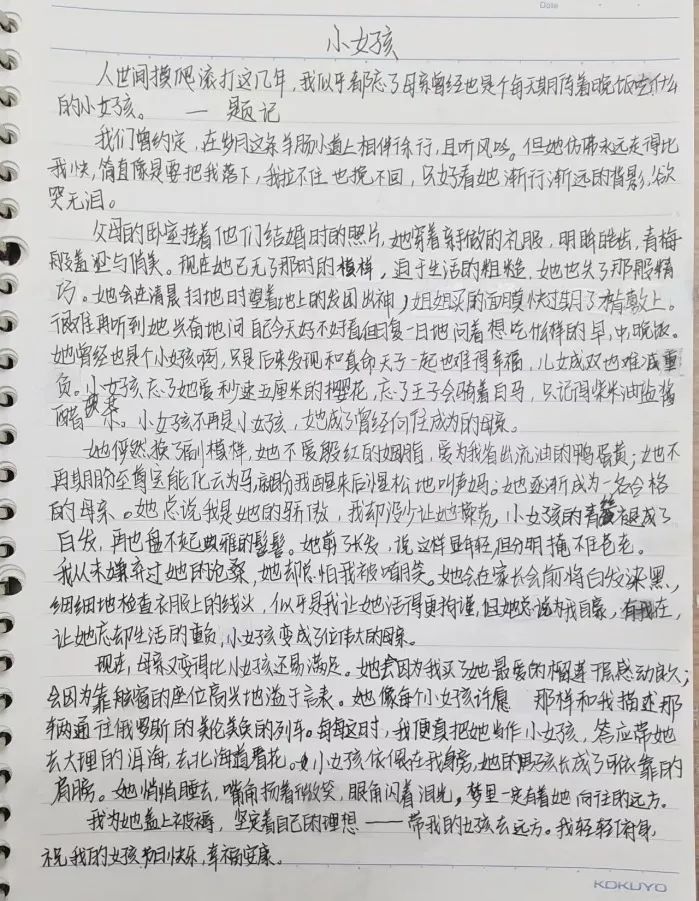 Date
小女孩
人世间摸爬滚打这几年，我似乎都忘了母亲曾经也是个每天期待着晚饭吃什么
的小女孩。 —— 题记
我们曾约定，在岁月这条羊肠小道上相伴徐行，且听风吟。但她仿佛永远走得比
我快，简直像是要把我落下，我拉不住也挽不回，只好看她渐行渐远的背影，欲
哭无泪。
父母的卧室挂着他们结婚时的照片，她穿着亲手做的礼服，明眸皓齿，青梅
般羞涩与俏美。现在她已无了那时的模样，迫于生活的粗糙，她也失了那股精
巧。她会在清晨扫地时望着地上的发团出神，姐姐买的面膜快过期了才肯敷上。
很难再听到她兴奋地问自己今天好不好看但日复一日地问着想吃什么样的早,中,晚饭。
她曾经也是个小女孩啊，只是后来发现和真命天子一起也难得幸福，儿女成双也难减重
负。小女孩忘了她爱秒速五厘米的樱花，忘了王子会骑着白马，只记得柴米油盐酱
醋茶。小女孩不再是小女孩，她成了曾经向往成为的母亲。
她俨然换了副模样，她不爱殷红的胭脂，爱为我省出流油的鸭蛋黄；她不
再期盼至尊宝能化云为马，就盼我醒来后惺松地叫声妈。她逐渐成为一名合格
的母亲。她总说我是她的骄傲，我却没少让她操劳，小女孩的青丝褪成了
白发，再也盘不起娴雅的髻鬟。她剪了长发，说这样显年轻，但分明掩不住苍老。
我从未嫌弃过她的沧桑，她却总怕我被嘲笑。她会在家长会前将白发染黑，
细细地检查衣服上的线头，似乎是我让她活得更拘谨，但她总说为我自豪，有我在，
让她忘却生活的重负，小女孩变成了位伟大的母亲。
现在，母亲又变得比小女孩还易满足。她会因为我买了她最爱的榴莲千层感动良久；
会因为靠着窗的座位高兴地溢于言表。她像每个小女孩许愿 那样和我描述那
辆通往俄罗斯的美伦美奂的列车。每每这时，我便真把她当作小女孩，答应带她
去大理的洱海，去北海道看花。小女孩依偎在我身旁，她的男孩长成了可依靠的
肩膀。她悄悄睡去，嘴角扬着微笑，眼角闪着泪光，梦里一定有着她向往的远方。
我为她盖上被褥，坚定着自己的理想——带我的女孩去远方。我轻轻俯身，
祝我的女孩节日快乐，幸福安康。
KOKUYO